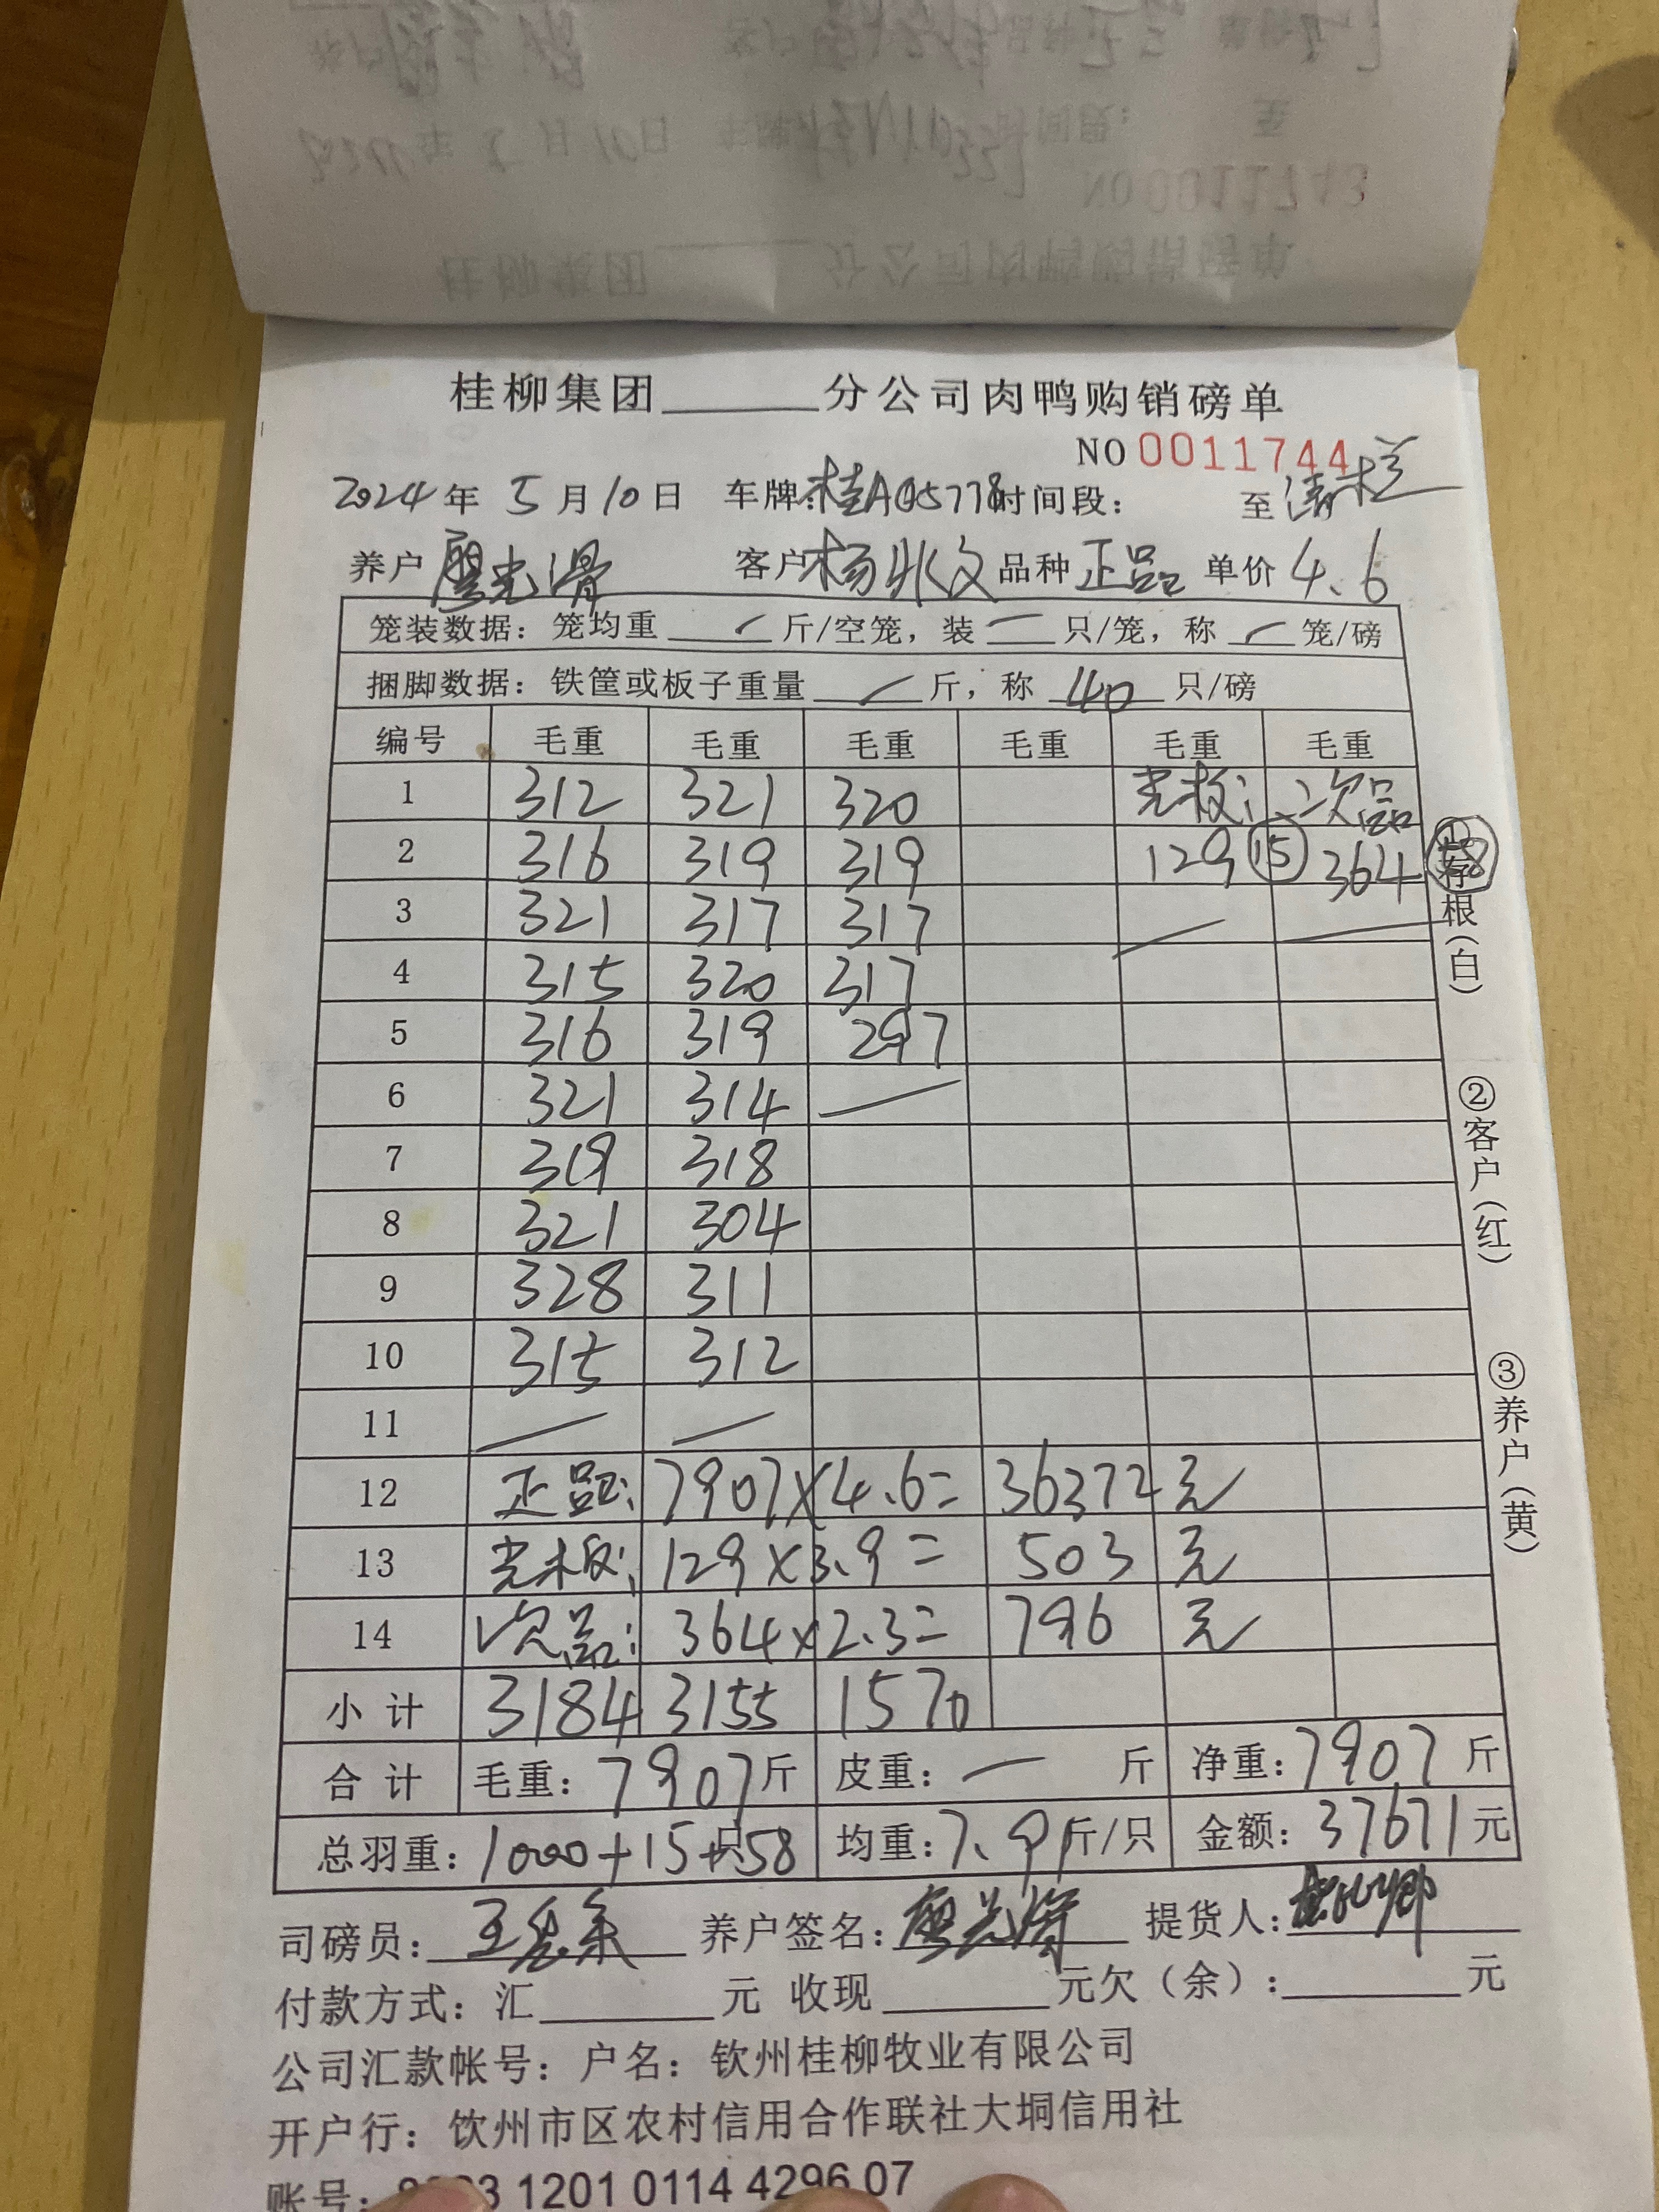 桂柳集团______分公司肉鸭购销磅单
NO 0011744
2024年5月10日 车牌:桂A05778 时间段: 至 清栏
养户 廖光 客户 杨 文 品种 正品 单价 4.6
笼装数据：笼均重 — 斤/空笼，装 — 只/笼，称 — 笼/磅
捆脚数据：铁筐或板子重量 — 斤，称 40 只/磅
编号 毛重 毛重 毛重 毛重 毛重 毛重
1 312 321 320 光板: 次品
2 316 319 319 129 ⑮ 364 58
3 321 317 317 — —
4 315 320 317
5 316 319 297
6 321 314 —
7 319 318
8 321 304
9 328 311
10 315 312
11 — —
12 正品: 7907×4.6= 36372元
13 光板: 129×3.9= 503元
14 次品: 364×2.3= 796元
小计 3184 3155 1570
合计 毛重：7907斤 皮重：— 斤 净重：7907斤
总羽重：1000+15+58只 均重：7.9斤/只 金额：37671元
司磅员： 养户签名：廖光 提货人：
付款方式：汇______元 收现______元欠（余）:______元
公司汇款帐号：户名：钦州桂柳牧业有限公司
开户行：钦州市区农村信用合作联社大垌信用社
账号：3 1201 0114 4296 07
①存根（白）
②客户（红）
③养户（黄）